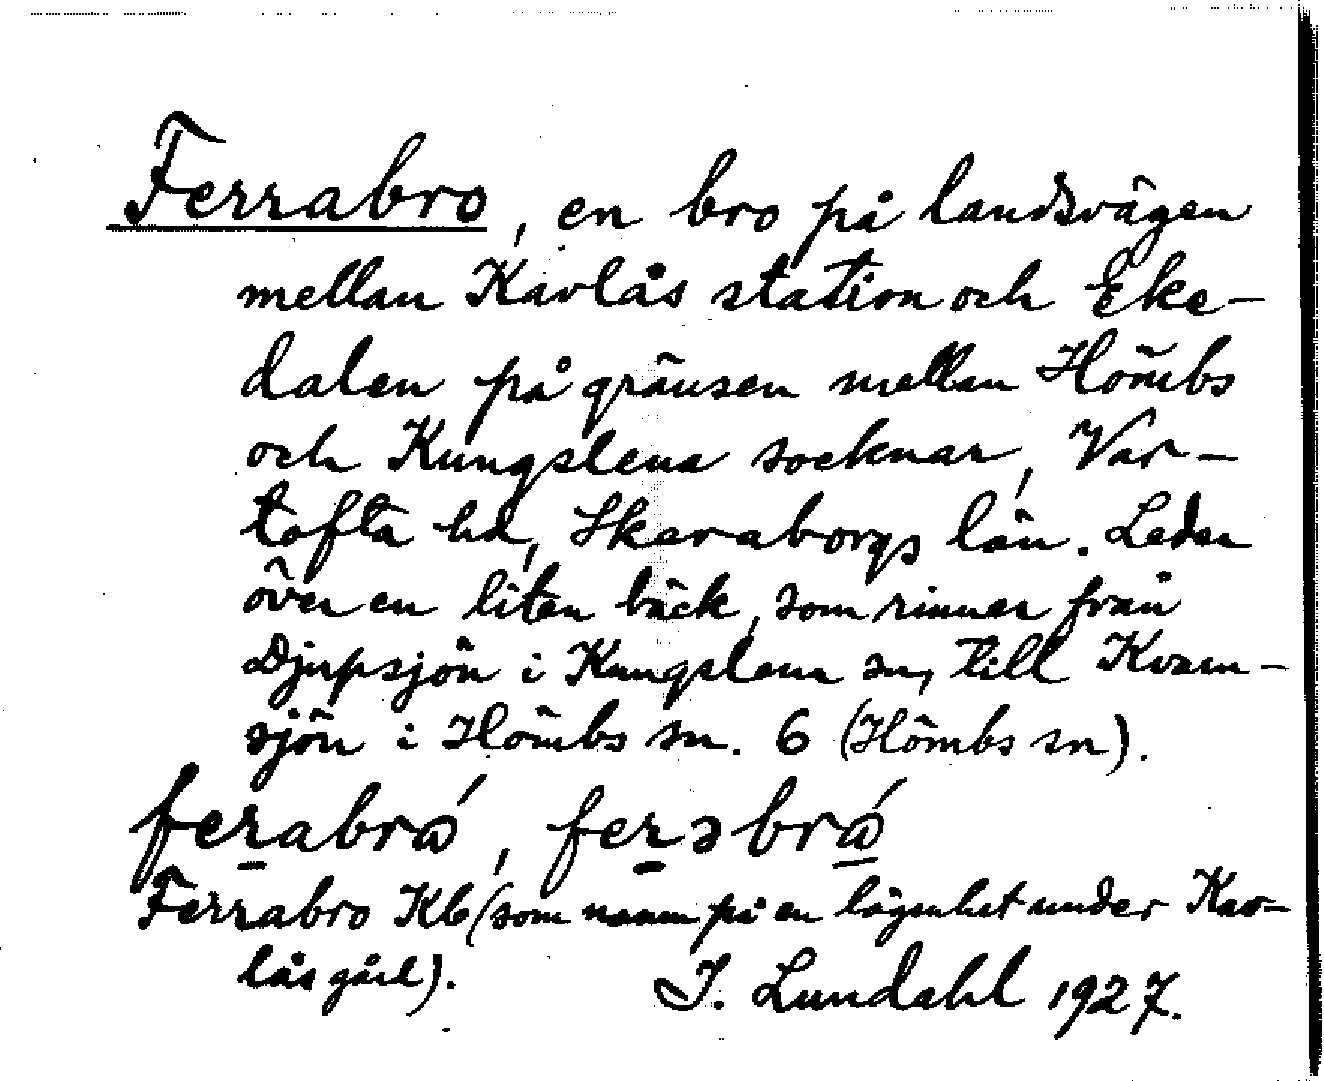 Ferrabro, en bro på landsvägen
mellan Kavlås station och Eke-
dalen på gränsen mellan Hömbs
och Kungslena socknar, Var-
tofta hd, Skaraborgs län. Leder
över en liten bäck, som rinner från
Djupsjön i Kungslena sn, till Kvarn-
sjön i Hömbs sn. 6 (Hömbs sn).
ferabró, ferəbró
Ferrabro Kb (som namn på en lägenhet under Kav-
lås gård).
I. Lundahl 1927.